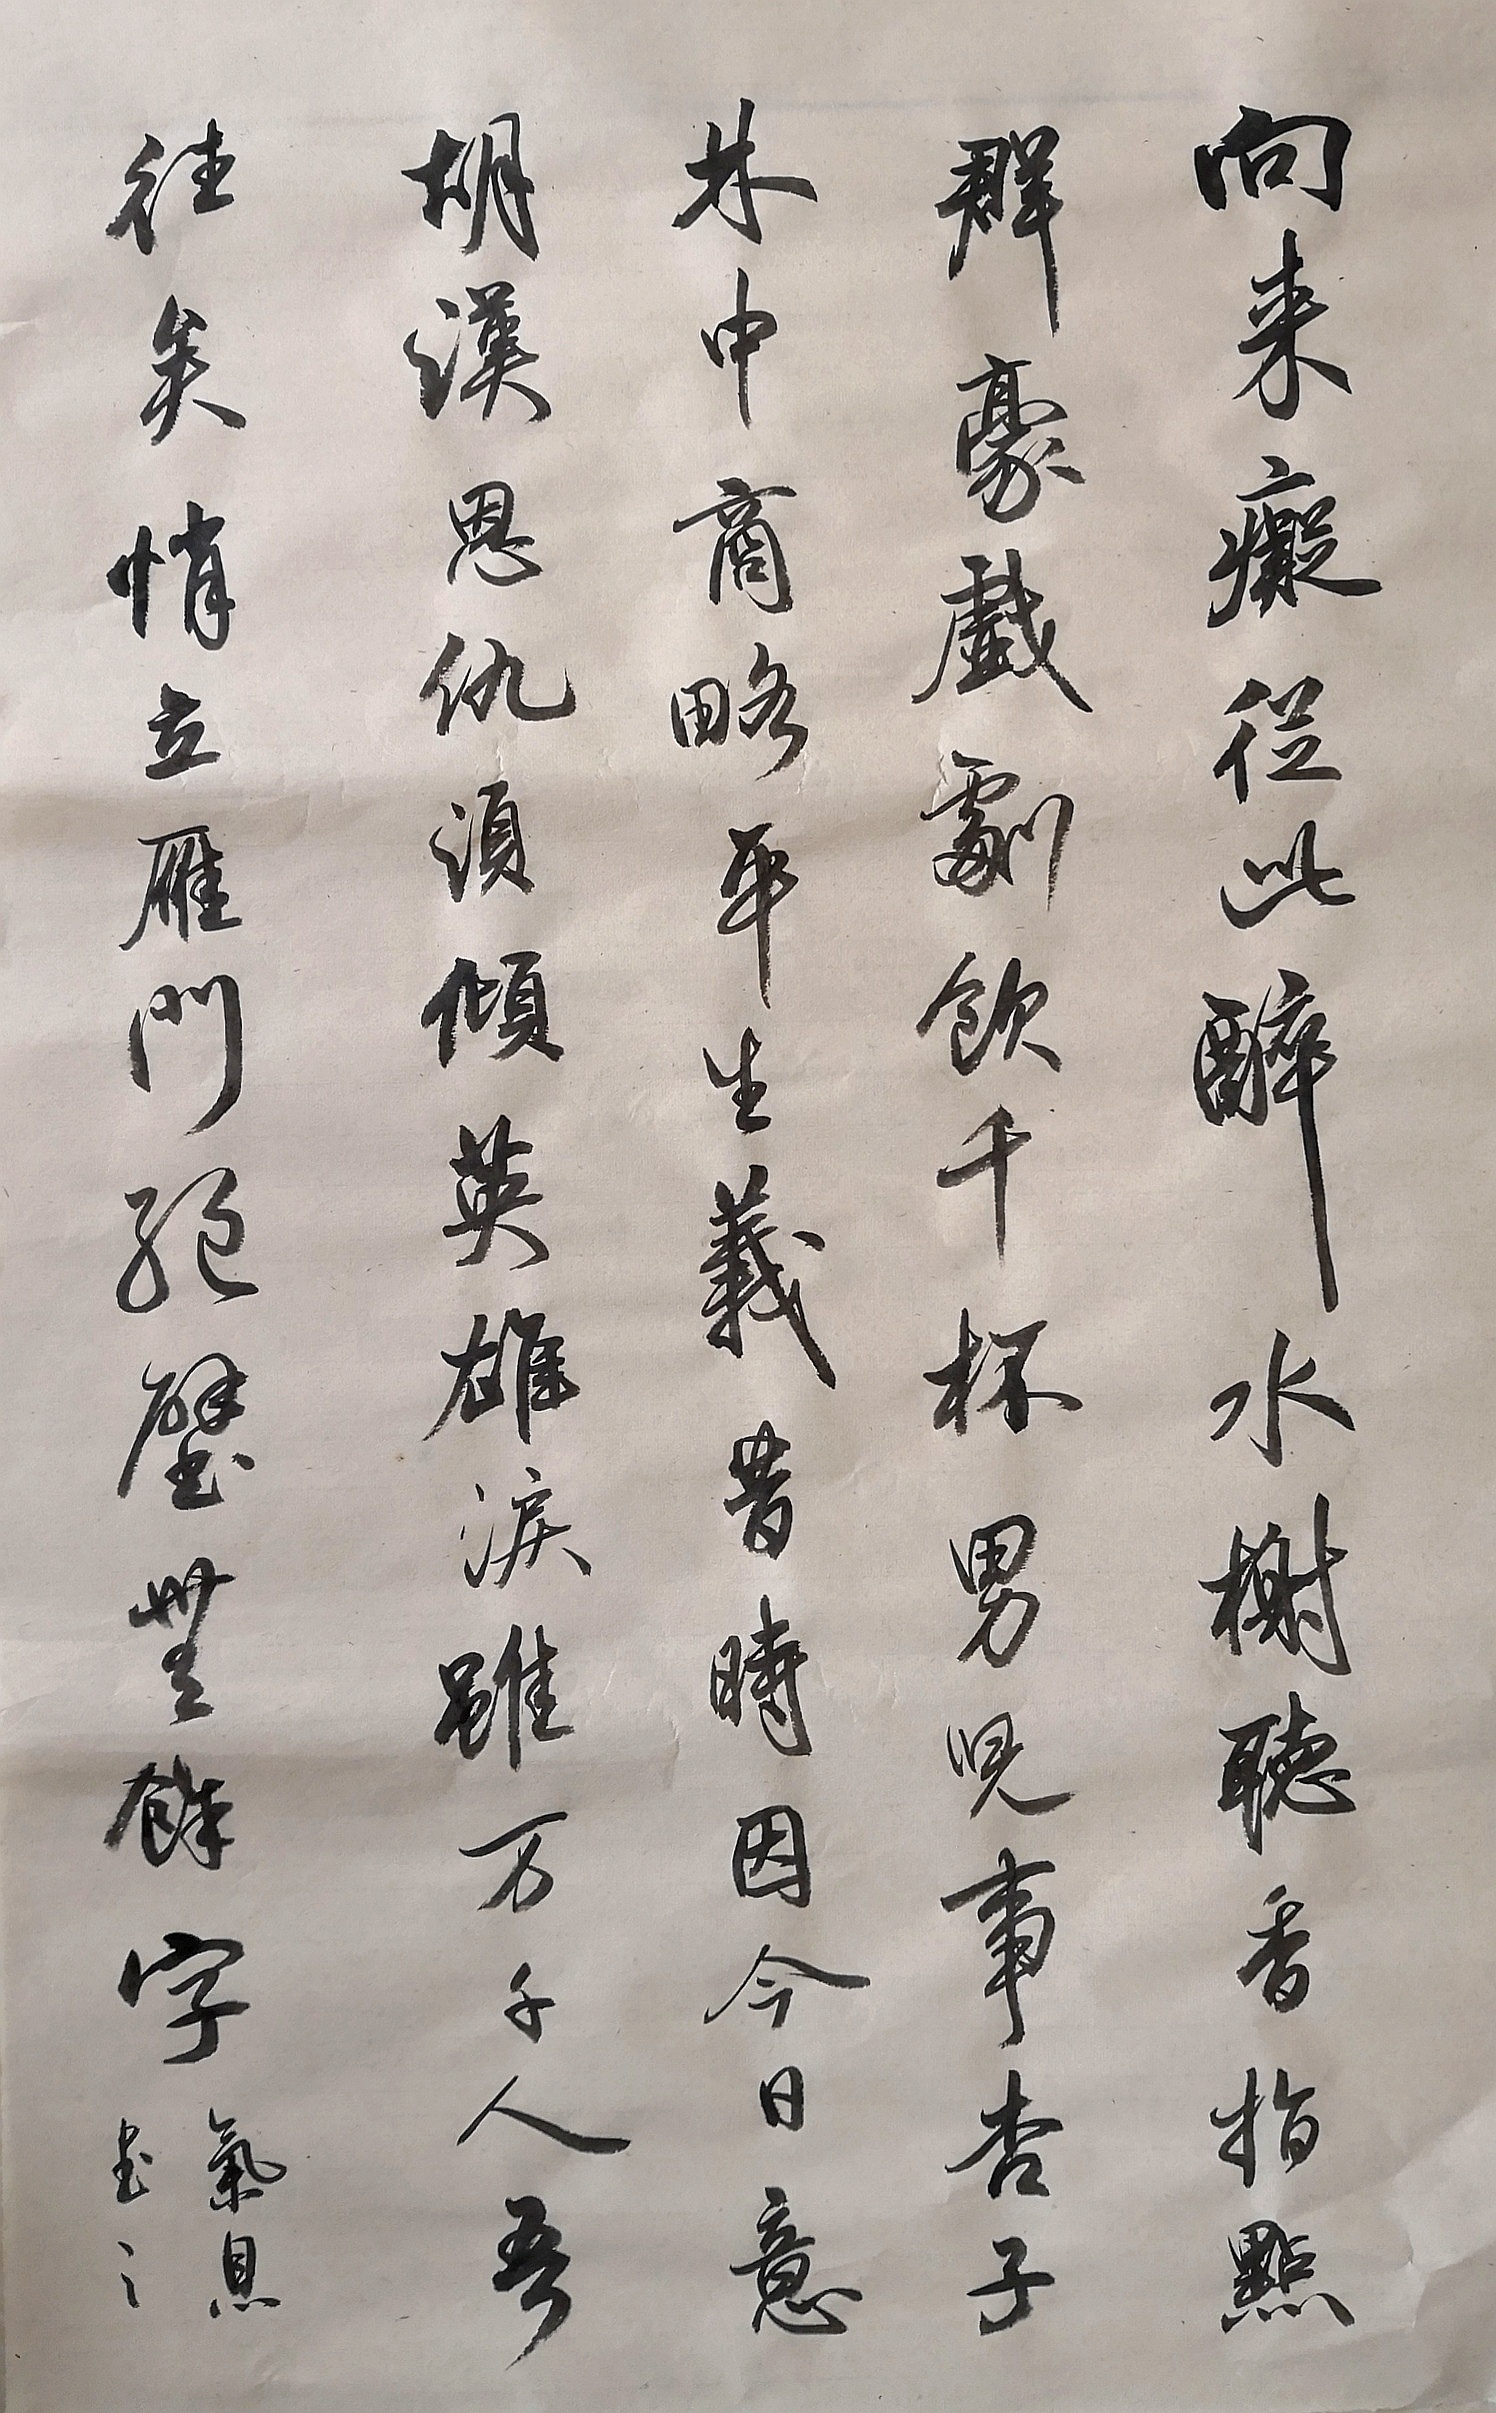 向来癡從此醉水榭聽香指點
群豪戲劇飲千杯男児事杏子
林中商略平生義昔時因今日意
胡漢恩仇須傾英雄淚雖万千人吾
往矣悄立雁門絕壁無餘字
氣息
書之